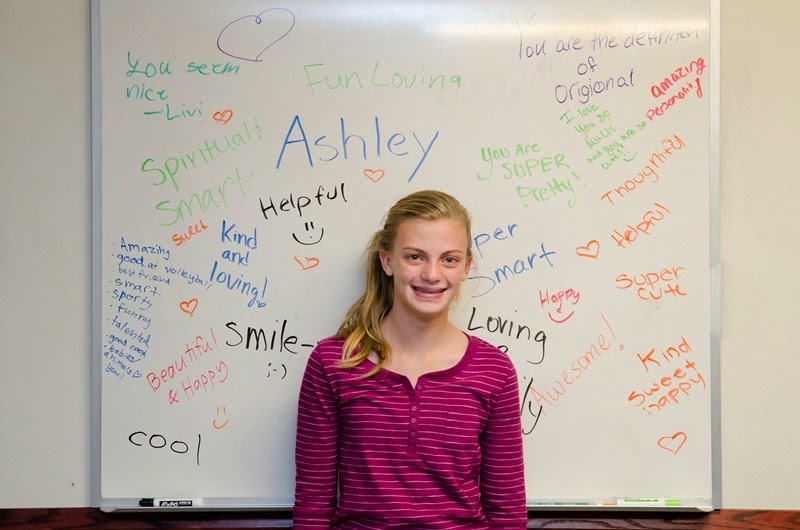 You seem
nice
-Livi
Fun Loving
You are the definition
of
Origional
amazing
Personality!
I love
You so
much
and you are so
cute!!
Spiritual!
Smart
Ashley
You Are
SUPER
Pretty!
Thoughtful
Helpful
Helpful
sweet
Kind
and
loving!
Smart
Super
Cute
Happy
• Amazing
• good at volleyball
best friend
• smart
• sports
• funny
• talented
• good cook
• babies/
animals
you!
Beautiful
& Happy
Smile-
;-)
Loving
Awesome!
Kind
Sweet
happy
cool
EXPO